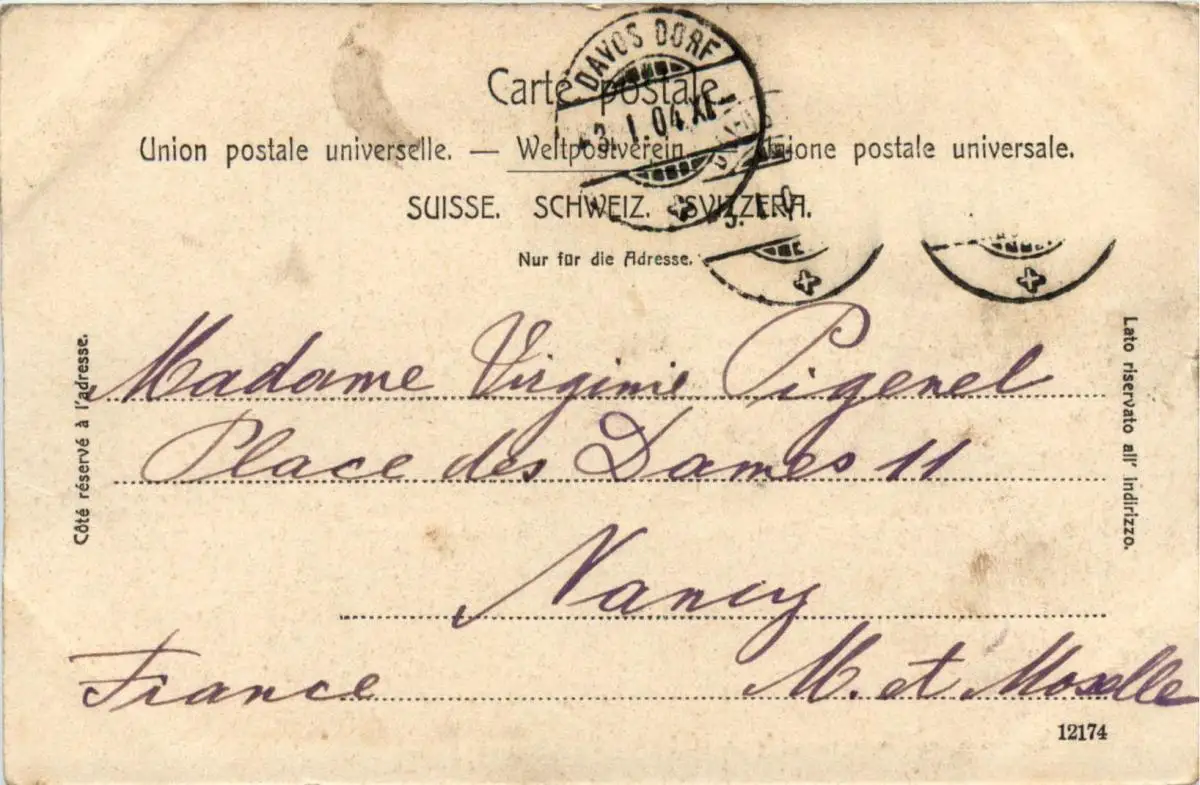 DAVOS DORF
Carte postale.
3. I. 04. XI
Union postale universelle. — Weltpostverein. — Unione postale universale.
SUISSE. SCHWEIZ. SVIZZERA.
Nur für die Adresse.
Côté réservé à l'adresse.
Lato riservato all' indirizzo.
Madame Virginie Pigenel
Place des Dames 11
Nancy
France M. et Moselle
12174